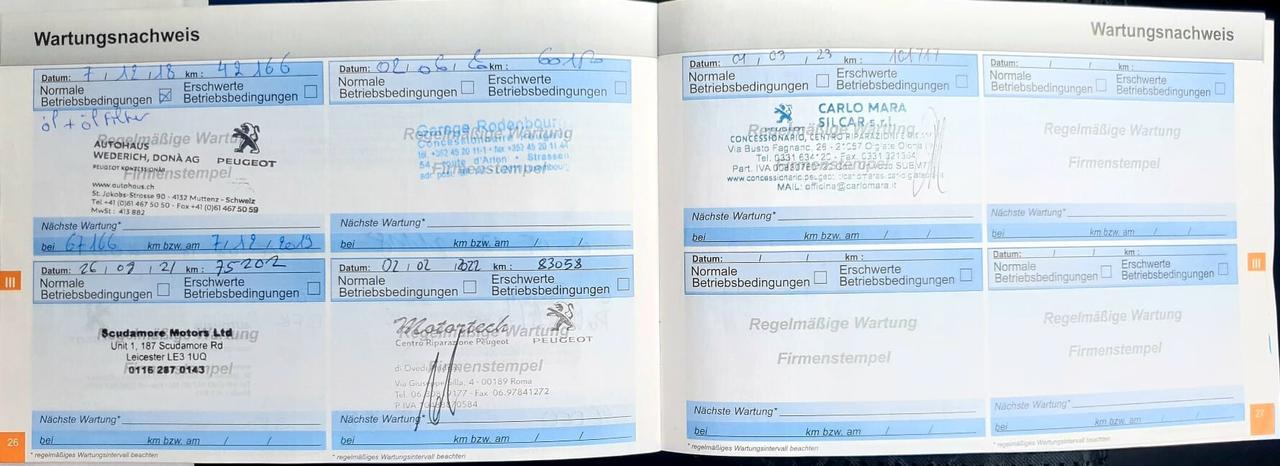 Wartungsnachweis
Datum: 7 / 12 / 18 km: 42 166
Normale Betriebsbedingungen
Erschwerte Betriebsbedingungen
öl + öl Filter
Regelmäßige Wartung
AUTOHAUS
WEDERICH, DONÀ AG
PEUGEOT KONZESSIONÄR
PEUGEOT
Firmenstempel
www.autohaus.ch
St. Jakobs-Strasse 90 - 4132 Muttenz - Schweiz
Tel +41 (0)61 467 50 50 - Fax +41 (0)61 467 50 59
MwSt.: 413 882
Nächste Wartung*
bei 67166 km bzw. am 7 / 12 / 2019
Datum: 02 / 06 / km:
Normale Betriebsbedingungen
Erschwerte Betriebsbedingungen
Regelmäßige Wartung
Garage Rodenbour
Concessionnaire Peugeot
54, route d'Arlon - Strassen
Firmenstempel
Nächste Wartung*
bei km bzw. am / /
Datum: 26 / 09 / 21 km: 75202
Normale Betriebsbedingungen
Erschwerte Betriebsbedingungen
Regelmäßige Wartung
Scudamore Motors Ltd
Unit 1, 187 Scudamore Rd
Leicester LE3 1UQ
0116 287 0143
Firmenstempel
Nächste Wartung*
bei km bzw. am / /
* regelmäßiges Wartungsintervall beachten
Datum: 02 / 02 / 2022 km: 83058
Normale Betriebsbedingungen
Erschwerte Betriebsbedingungen
Regelmäßige Wartung
Motortech
Centro Riparazione Peugeot
PEUGEOT
Firmenstempel
Via Giuseppe Silla, 4 - 00189 Roma
Fax 06.97841272
Nächste Wartung*
bei km bzw. am / /
* regelmäßiges Wartungsintervall beachten
III
26
Wartungsnachweis
Datum: 01 / 03 / 23 km: 101717
Normale Betriebsbedingungen
Erschwerte Betriebsbedingungen
Regelmäßige Wartung
CARLO MARA
SILCAR s.r.l.
CONCESSIONARIO, CENTRO RIPARAZIONE
Via Busto Fagnano, 26 - 21057 Olgiate Olona
Firmenstempel
MAIL: officina@carlomara.it
Nächste Wartung*
bei km bzw. am / /
Datum: / / km:
Normale Betriebsbedingungen
Erschwerte Betriebsbedingungen
Regelmäßige Wartung
Firmenstempel
Nächste Wartung*
bei km bzw. am / /
Datum: / / km:
Normale Betriebsbedingungen
Erschwerte Betriebsbedingungen
Regelmäßige Wartung
Firmenstempel
Nächste Wartung*
bei km bzw. am / /
* regelmäßiges Wartungsintervall beachten
Datum: / / km:
Normale Betriebsbedingungen
Erschwerte Betriebsbedingungen
Regelmäßige Wartung
Firmenstempel
Nächste Wartung*
bei km bzw. am / /
* regelmäßiges Wartungsintervall beachten
III
27